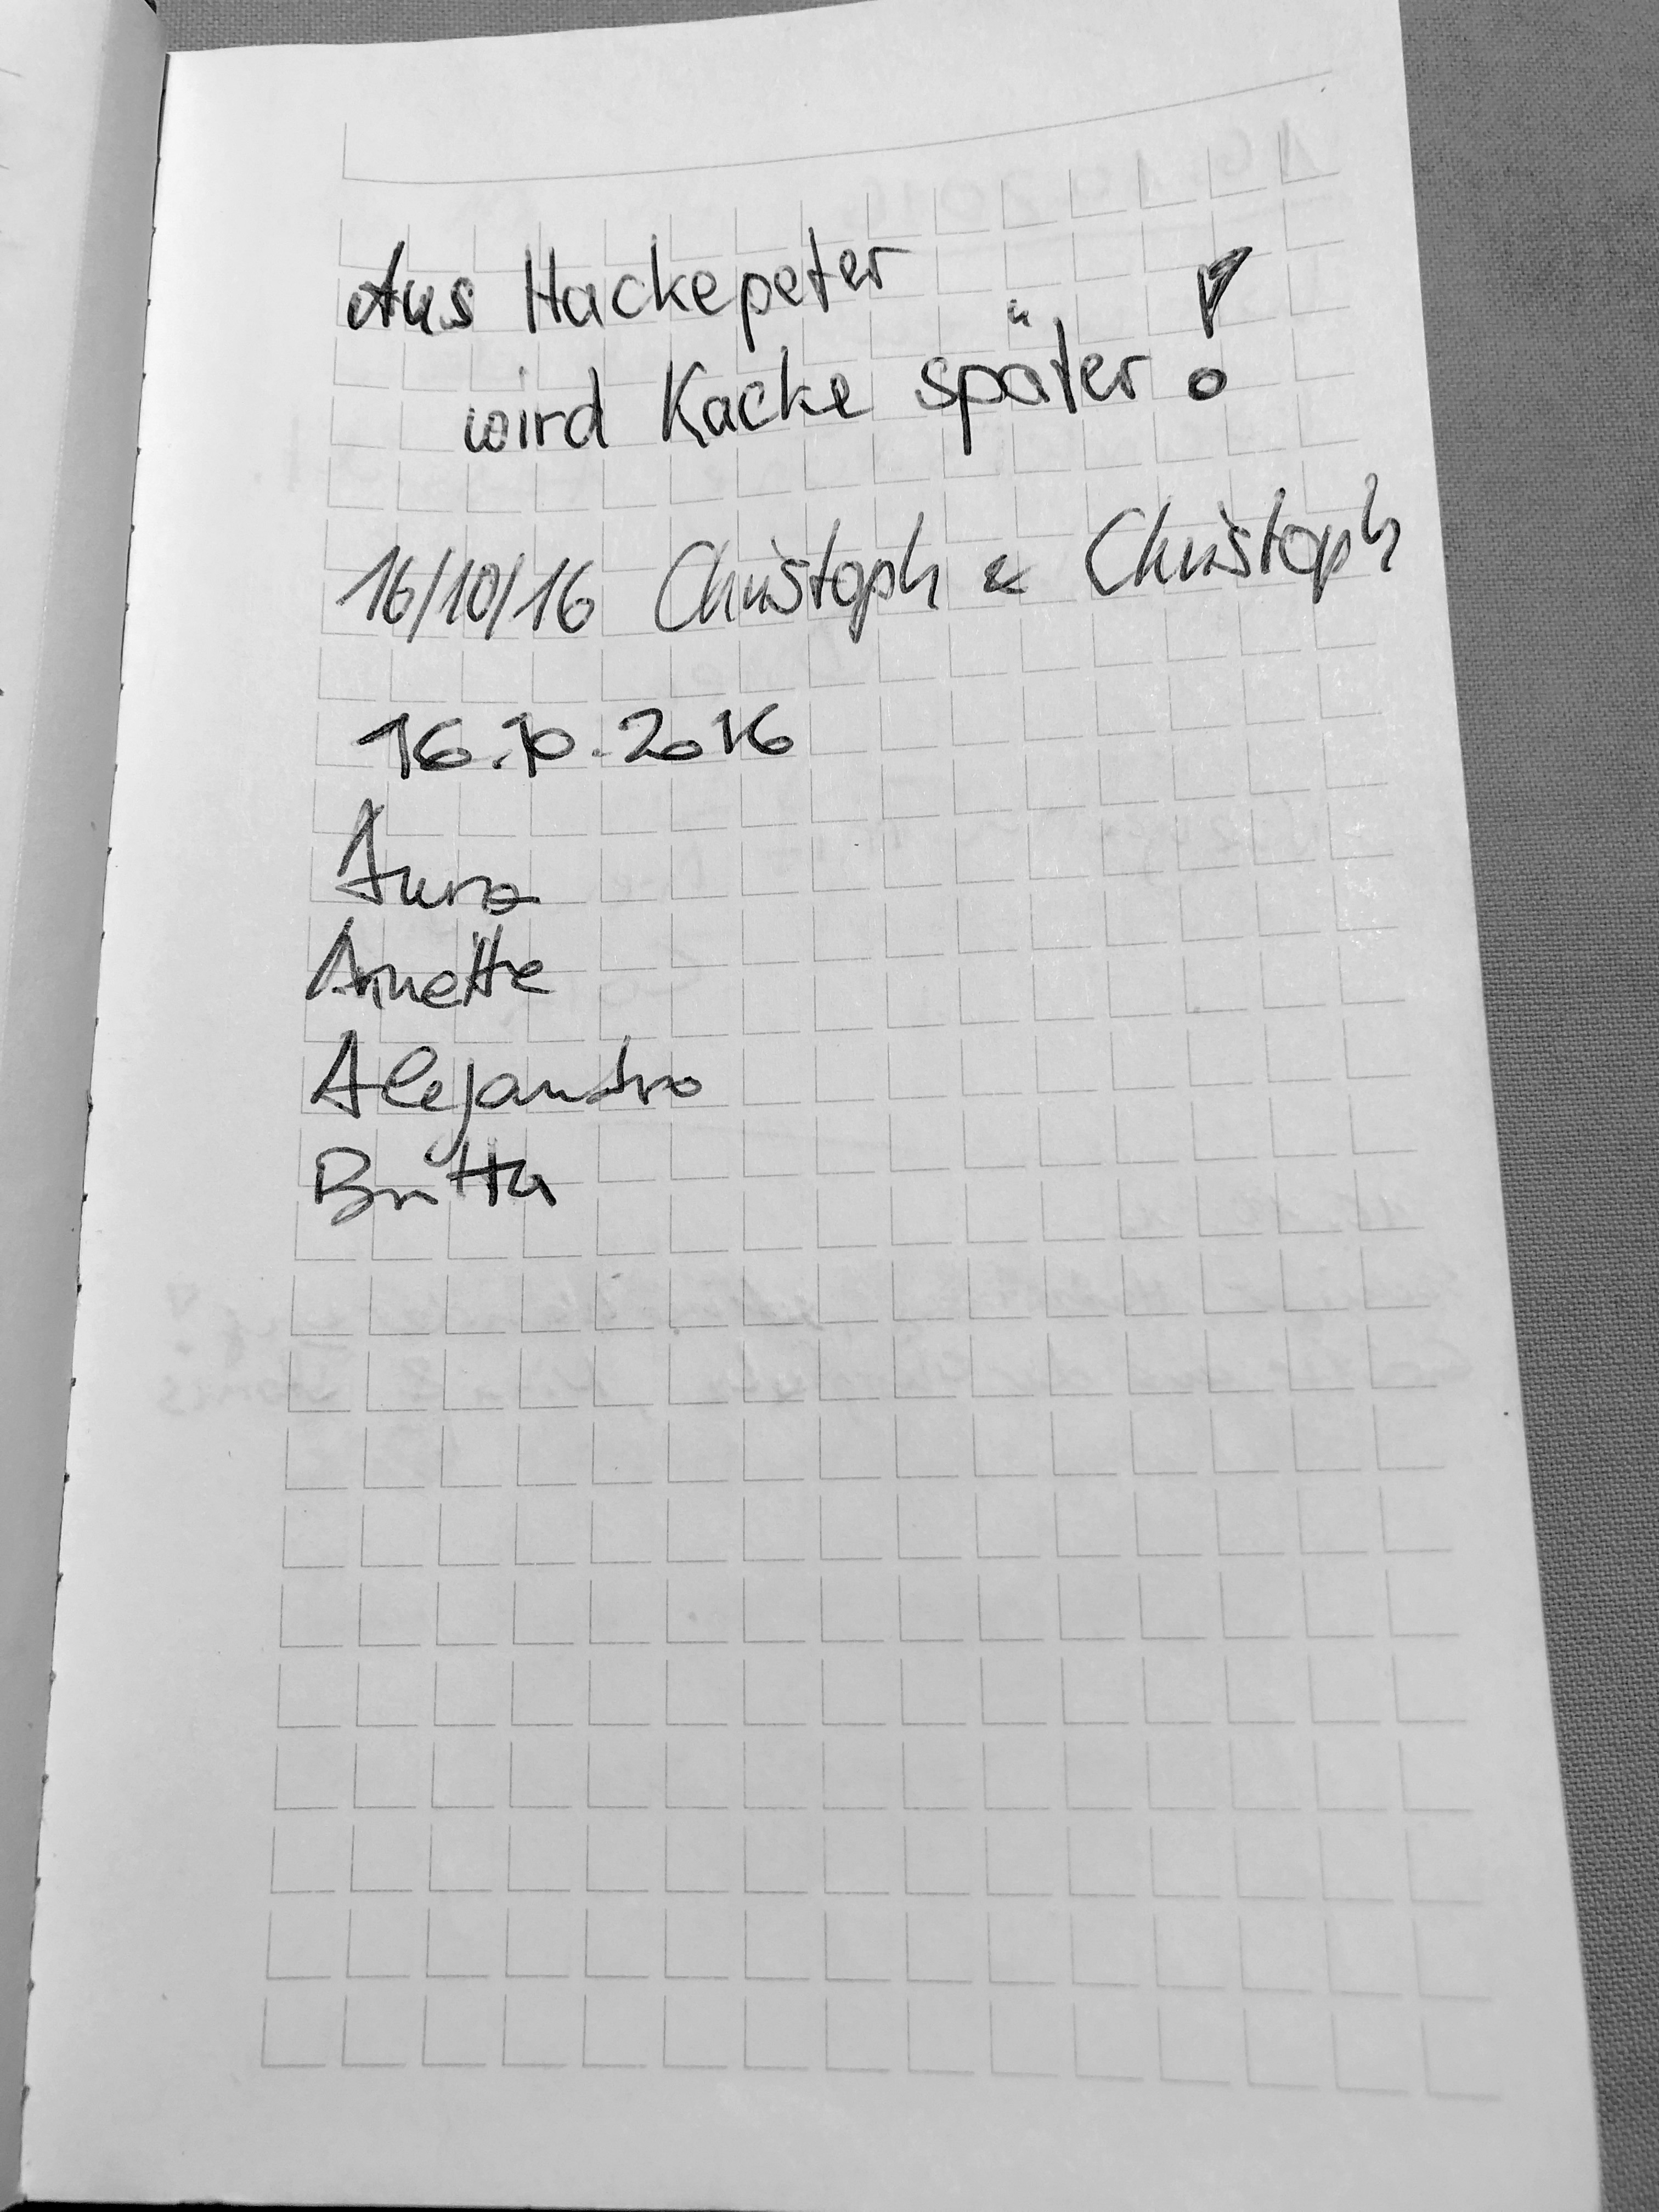 Aus Hackepeter
wird Kacke später!
16/10/16 Christoph & Christoph
16.10.2016
Annette
Alejandro
Britta